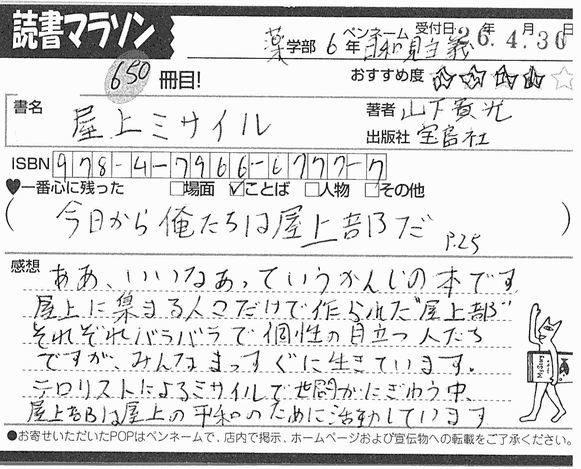 読書マラソン
ペンネーム 受付日: 26年.4.30日
薬学部 6年 日和見主義
650冊目!
おすすめ度 ★★★★☆
書名 屋上ミサイル
著者 山下貴光
出版社 宝島社
ISBN 978-4-7966-6777-7
♥一番心に残った □場面 ☑ことば □人物 □その他
(今日から俺たちは屋上部だ P.25)
感想 ああ、いいなあっていうかんじの本です
屋上に集まる人々だけで作られた"屋上部"
それぞれバラバラで個性の目立つ人たち
ですが、みんなまっすぐに生きています。
テロリストによるミサイルで世間がにぎわう中、
屋上部は屋上の平和のために活動しています
●お寄せいただいたPOPはペンネームで、店内で掲示、ホームページおよび宣伝物への転載をご了承ください。